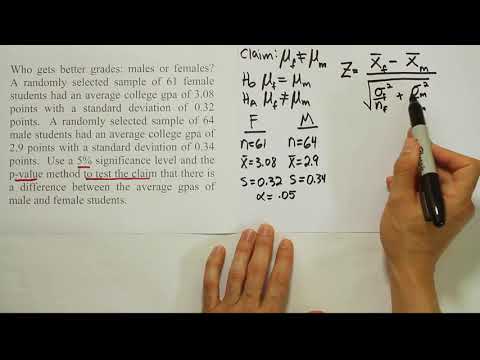 Who gets better grades: males or females?
A randomly selected sample of 61 female
students had an average college gpa of 3.08
points with a standard deviation of 0.32
points. A randomly selected sample of 64
male students had an average college gpa of
2.9 points with a standard deviation of 0.34
points. Use a 5% significance level and the
p-value method to test the claim that there is
a difference between the average gpas of
male and female students.
Claim: μf ≠ μm
H₀ μf = μm
Hᴀ μf ≠ μm
F M
n=61 n=64
x̄=3.08 x̄=2.9
S=0.32 S=0.34
α = .05
Z = X̄f − X̄m
√ σf²/nf + σm²/nm